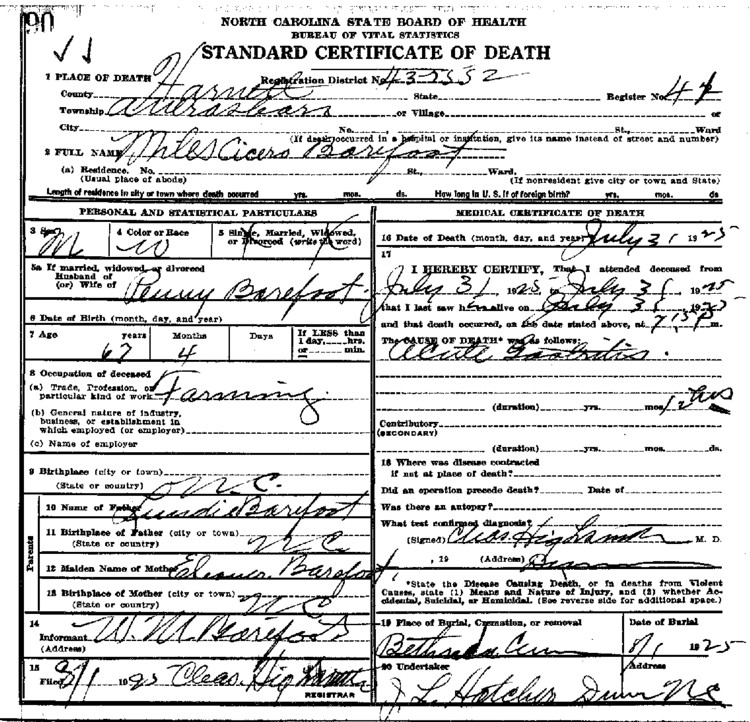 90
NORTH CAROLINA STATE BOARD OF HEALTH
BUREAU OF VITAL STATISTICS
STANDARD CERTIFICATE OF DEATH
1 PLACE OF DEATH
Registration District No.
County Harnett State Register No. 44
Township Averasboro or Village or
City No. St., Ward
(If death occurred in a hospital or institution, give its name instead of street and number)
2 FULL NAME Miles Cicero Barefoot
(a) Residence. No. St., Ward.
(Usual place of abode) (If nonresident give city or town and State)
Length of residence in city or town where death occurred yrs. mos. ds. How long in U. S. if of foreign birth? yrs. mos. ds.
PERSONAL AND STATISTICAL PARTICULARS
3 Sex M
4 Color or Race W
5 Single, Married, Widowed, or Divorced (write the word)
5a If married, widowed, or divorced
Husband of
(or) Wife of Penny Barefoot
6 Date of Birth (month, day, and year)
7 Age years Months Days If LESS than
1 day, hrs.
67 4 or min.
8 Occupation of deceased
(a) Trade, Profession, or
particular kind of work Farming
(b) General nature of industry,
business, or establishment in
which employed (or employer)
(c) Name of employer
9 Birthplace (city or town)
(State or country) N C.
Parents
10 Name of Father Barefoot
11 Birthplace of Father (city or town)
(State or country) N C
12 Maiden Name of Mother Barefoot
13 Birthplace of Mother (city or town)
(State or country) N C
14
Informant W. M. Barefoot
(Address)
15
Filed 8/1 1925 Chas. Highsmith
REGISTRAR
MEDICAL CERTIFICATE OF DEATH
16 Date of Death (month, day, and year) July 31 1925
17
I HEREBY CERTIFY, That I attended deceased from
July 31 1925 to July 31 1925
that I last saw h alive on July 31 1925
and that death occurred, on the date stated above, at m.
The CAUSE OF DEATH* was as follows:
Acute Gastritis.
(duration) yrs. mos. 12 hrs
Contributory
(SECONDARY)
(duration) yrs. mos. ds.
18 Where was disease contracted
if not at place of death?
Did an operation precede death? Date of
Was there an autopsy?
What test confirmed diagnosis?
(Signed) Chas Highsmith M. D.
, 19 (Address) Dunn
*State the Disease Causing Death, or in deaths from Violent
Causes, state (1) Means and Nature of Injury, and (2) whether Ac-
cidental, Suicidal, or Homicidal. (See reverse side for additional space.)
19 Place of Burial, Cremation, or removal Date of Burial
8/1 1925
20 Undertaker Address
J. L. Hatcher Dunn NC